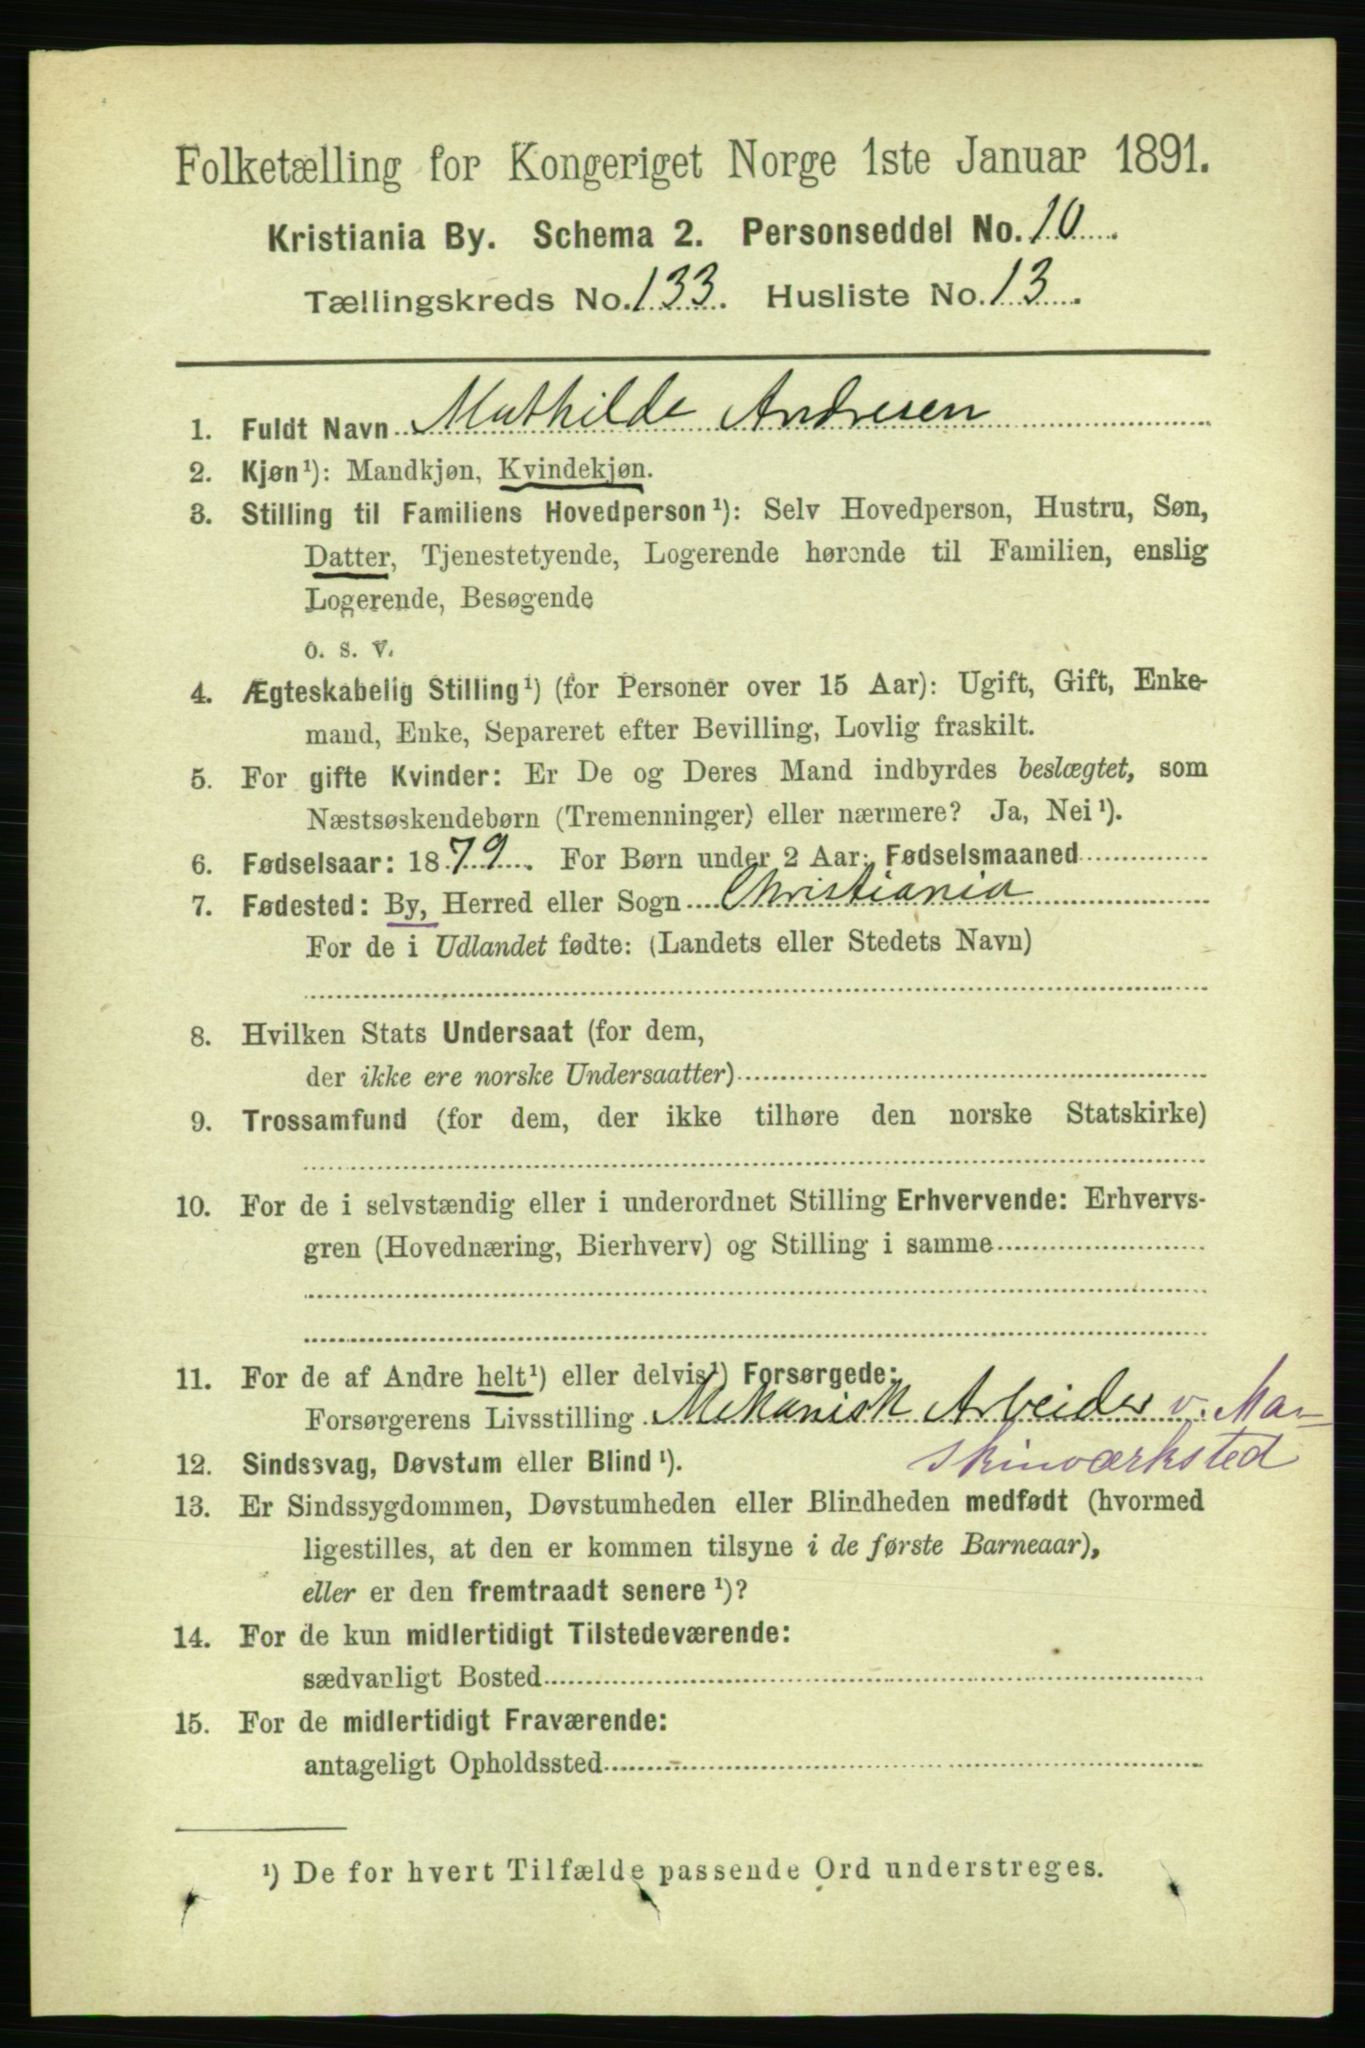 Folketælling for Kongeriget Norge 1ste Januar 1891.
Kristiania By. Schema 2. Personseddel No. 10.
Tællingskreds No. 133. Husliste No. 13.
1. Fuldt Navn Mathilde Andresen
2. Kjøn¹): Mandkjøn, Kvindekjøn.
3. Stilling til Familiens Hovedperson¹): Selv Hovedperson, Hustru, Søn,
Datter, Tjenestetyende, Logerende hørende til Familien, enslig
Logerende, Besøgende
o. s. v.
4. Ægteskabelig Stilling¹) (for Personer over 15 Aar): Ugift, Gift, Enke-
mand, Enke, Separeret efter Bevilling, Lovlig fraskilt.
5. For gifte Kvinder: Er De og Deres Mand indbyrdes beslægtet, som
Næstsøskendebørn (Tremenninger) eller nærmere? Ja, Nei¹).
6. Fødselsaar: 1879. For Børn under 2 Aar: Fødselsmaaned
7. Fødested: By, Herred eller Sogn Christiania
For de i Udlandet fødte: (Landets eller Stedets Navn)
8. Hvilken Stats Undersaat (for dem,
der ikke ere norske Undersaatter)
9. Trossamfund (for dem, der ikke tilhøre den norske Statskirke)
10. For de i selvstændig eller i underordnet Stilling Erhvervende: Erhvervs-
gren (Hovednæring, Bierhverv) og Stilling i samme
11. For de af Andre helt¹) eller delvis¹) Forsørgede:
Forsørgerens Livsstilling Mekanisk Arbeider v. Ma-
skinværksted
12. Sindssvag, Døvstum eller Blind¹).
13. Er Sindssygdommen, Døvstumheden eller Blindheden medfødt (hvormed
ligestilles, at den er kommen tilsyne i de første Barneaar),
eller er den fremtraadt senere¹)?
14. For de kun midlertidigt Tilstedeværende:
sædvanligt Bosted
15. For de midlertidigt Fraværende:
antageligt Opholdssted
¹) De for hvert Tilfælde passende Ord understreges.